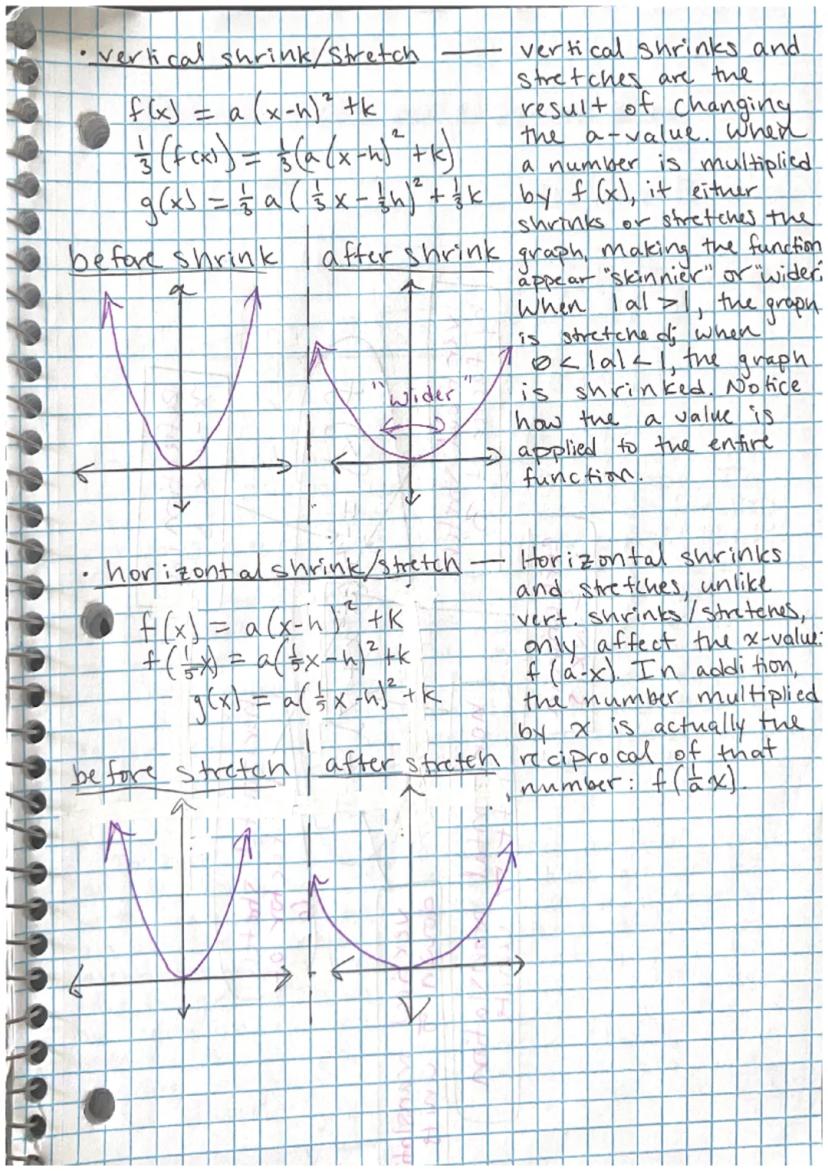 • vertical shrink/stretch —
f(x) = a(x-h)² + k
⅓(f(x)) = ⅓(a(x-h)² + k)
g(x) = ⅓a(⅓x - ⅓h)² + ⅓k
before shrink | after shrink
"wider"
vertical shrinks and
stretches are the
result of changing
the a-value. When
a number is multiplied
by f(x), it either
shrinks or stretches the
graph, making the function
appear "skinnier" or "wider".
When |a|>1, the graph
is stretched; when
0<|a|<1, the graph
is shrinked. Notice
how the a value is
applied to the entire
function.
• horizontal shrink/stretch —
f(x) = a(x-h)² + k
f(⅕x) = a(⅕x-h)² + k
g(x) = a(⅕x-h)² + k
before stretch | after stretch
Horizontal shrinks
and stretches, unlike
vert. shrinks/stretches,
only affect the x-value:
f(a·x). In addition,
the number multiplied
by x is actually the
reciprocal of that
number: f(1/a x).